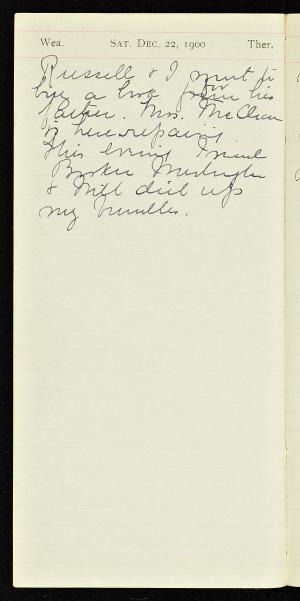 Wea. SAT. DEC. 22, 1900 Ther.
Russell & I went to
buy a book for his
father. Mrs. McClean
is here repairing
This evening I and
& Will did up
my bundles.